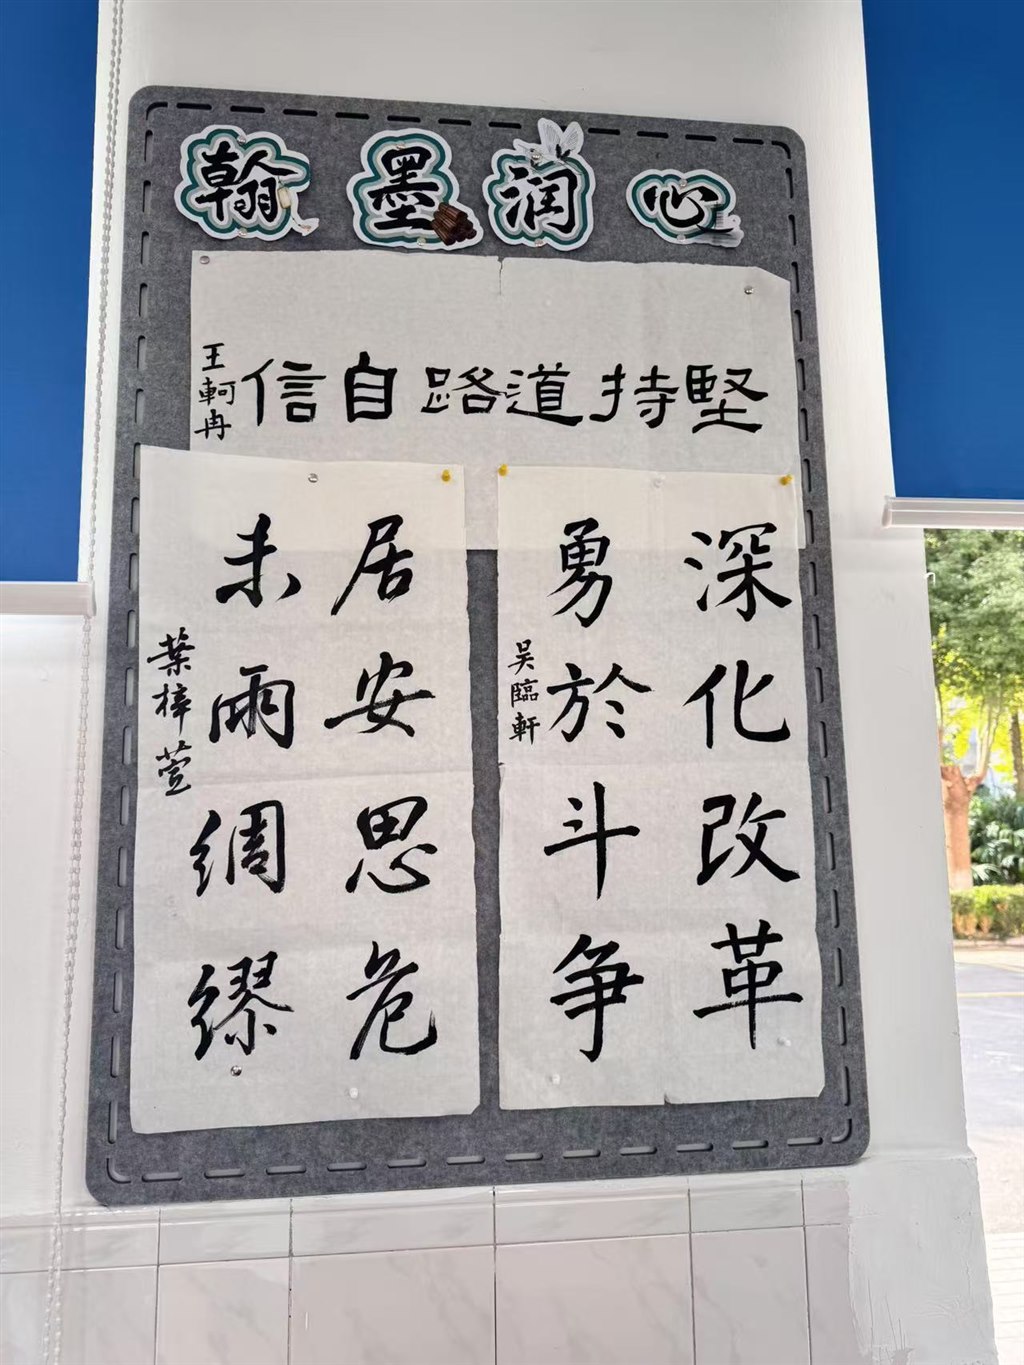 翰墨润心
堅持道路自信
王軻冉
深化改革
勇於斗争
吴臨軒
居安思危
未雨綢缪
葉梓萱